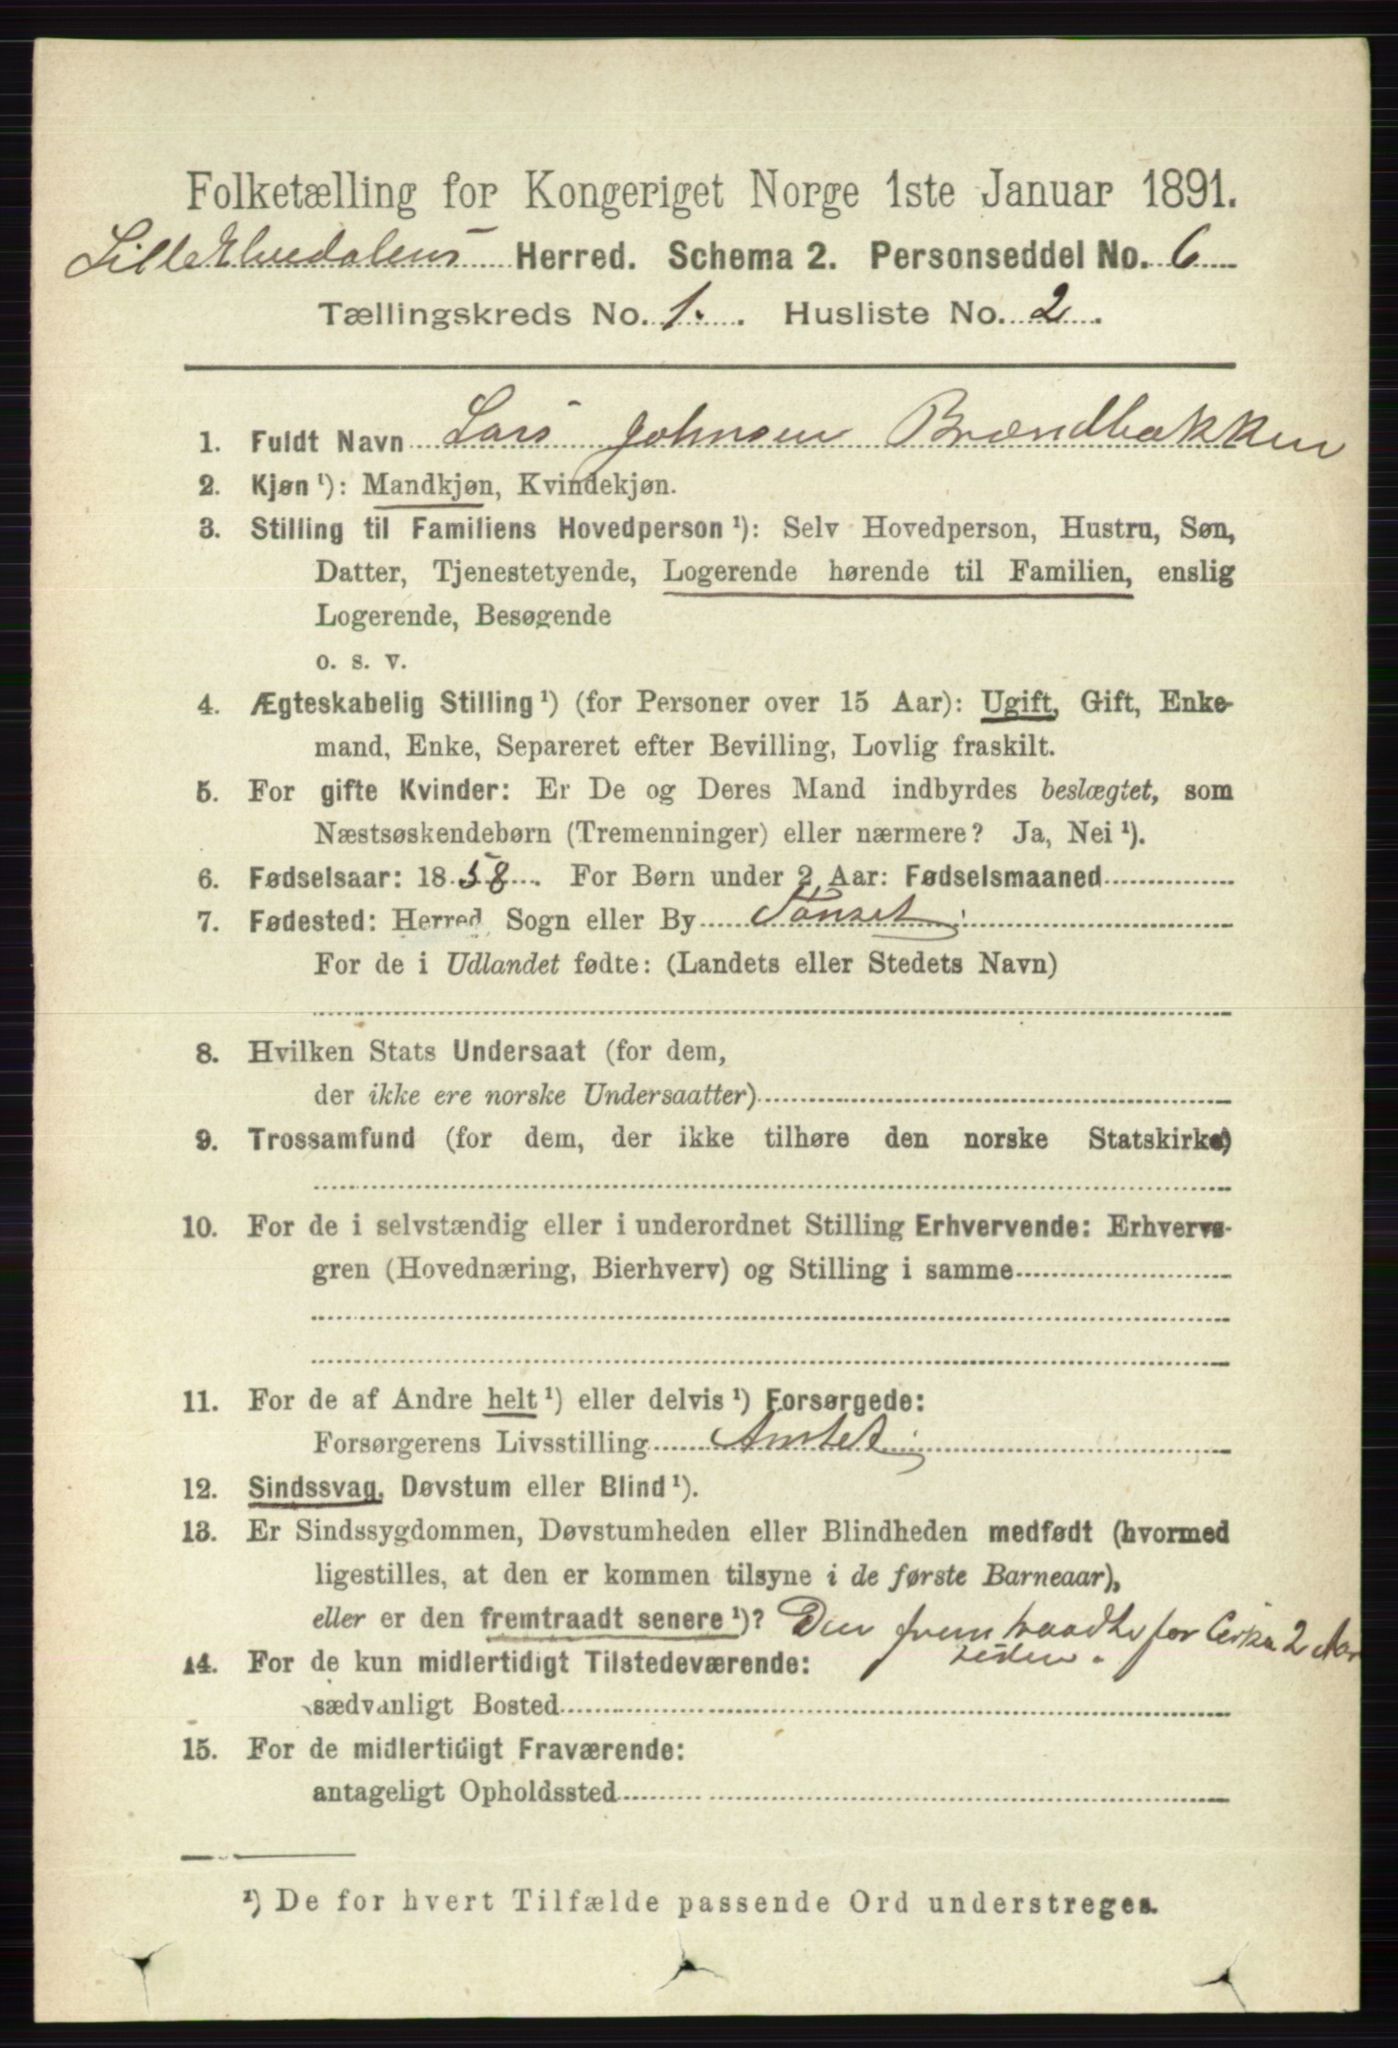 Folketælling for Kongeriget Norge 1ste Januar 1891.
Lille Elvedalens Herred. Schema 2. Personseddel No. 6
Tællingskreds No. 1. Husliste No. 2.
1. Fuldt Navn Lars Johnsen Brændbakken
2. Kjøn ¹): Mandkjøn, Kvindekjøn.
3. Stilling til Familiens Hovedperson ¹): Selv Hovedperson, Hustru, Søn,
Datter, Tjenestetyende, Logerende hørende til Familien, enslig
Logerende, Besøgende
o. s. v.
4. Ægteskabelig Stilling ¹) (for Personer over 15 Aar): Ugift, Gift, Enke-
mand, Enke, Separeret efter Bevilling, Lovlig fraskilt.
5. For gifte Kvinder: Er De og Deres Mand indbyrdes beslægtet, som
Næstsøskendebørn (Tremenninger) eller nærmere? Ja, Nei ¹).
6. Fødselsaar: 1858. For Børn under 2 Aar: Fødselsmaaned
7. Fødested: Herred, Sogn eller By Tönset
For de i Udlandet fødte: (Landets eller Stedets Navn)
8. Hvilken Stats Undersaat (for dem,
der ikke ere norske Undersaatter)
9. Trossamfund (for dem, der ikke tilhøre den norske Statskirke)
10. For de i selvstændig eller i underordnet Stilling Erhvervende: Erhvervs-
gren (Hovednæring, Bierhverv) og Stilling i samme
11. For de af Andre helt ¹) eller delvis ¹) Forsørgede:
Forsørgerens Livsstilling Amtet
12. Sindssvag, Døvstum eller Blind ¹).
13. Er Sindssygdommen, Døvstumheden eller Blindheden medfødt (hvormed
ligestilles, at den er kommen tilsyne i de første Barneaar),
eller er den fremtraadt senere ¹)? Den fremtraadte for Cirka 2 Aar
siden.
14. For de kun midlertidigt Tilstedeværende:
sædvanligt Bosted
15. For de midlertidigt Fraværende:
antageligt Opholdssted
¹) De for hvert Tilfælde passende Ord understreges.